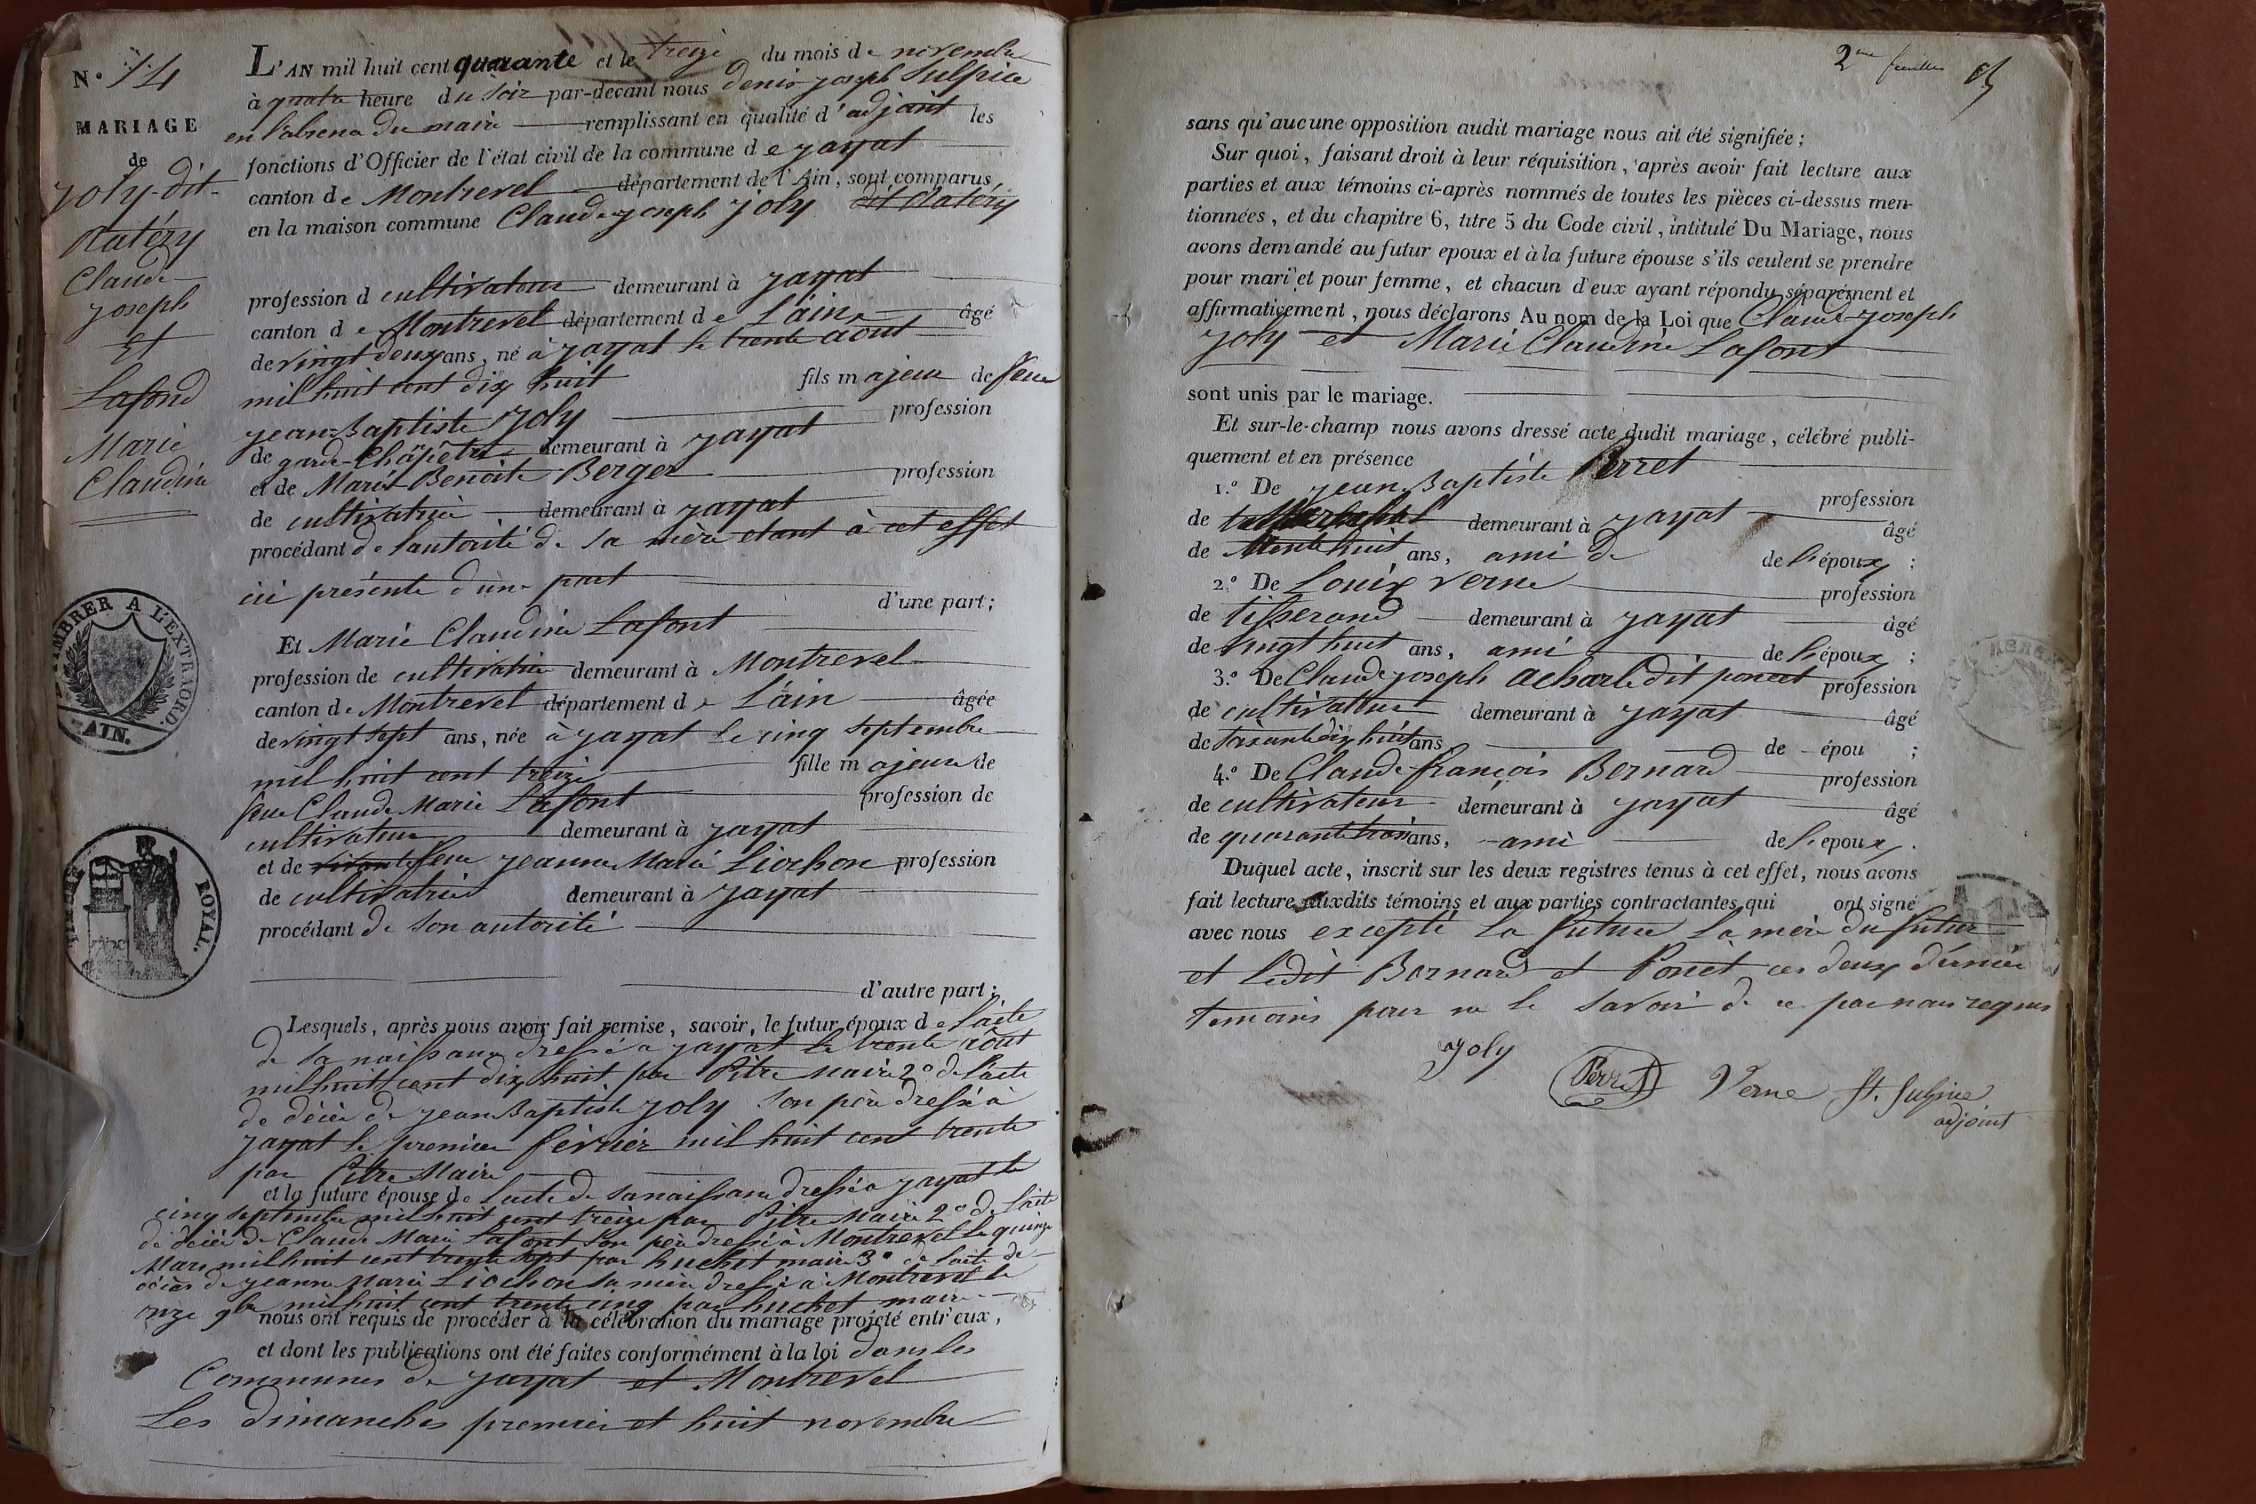 N.° 14
MARIAGE
de
Joly-dit-
Clatéry
Claude
Joseph
Et
Lafond
Marie
Claudine
TIMBRER A L'EXTRAORD.
AIN.
TIMBRE ROYAL.
L'AN mil huit cent quarante et le treize du mois de novembre
à quatre heure du soir par-devant nous denis joseph Sulpice
en l'absence du maire remplissant en qualité d'adjoint les
fonctions d'Officier de l'état civil de la commune de jayat
canton de Montrevel département de l'Ain, sont comparus
en la maison commune Claude joseph Joly dit Clatéry
profession d cultivateur demeurant à jayat
canton de Montrevel département de L'ain âgé
de vingt deux ans, né à jayat le trente aout
mil huit cent dix huit fils majeur de feu
jean-Baptiste Joly profession
de garde-Chapêtre demeurant à jayat
et de Marie Benoite Berger profession
de cultivatrice demeurant à jayat
procédant de l'autorité de sa mère etant à cet effet
ici présente d'une part
d'une part;
Et Marie Claudine Lafont
profession de cultivatrice demeurant à Montrevel
canton de Montrevel département de L'ain âgée
de vingt sept ans, née à jayat le cinq septembre
mil huit cent treize fille majeure de
feu Claude Marie Lafont profession de
cultivateur demeurant à jayat
et de feue jeanne Marie Liochon profession
de cultivatrice demeurant à jayat
procédant de son autorité
d'autre part;
Lesquels, après nous avoir fait remise, savoir, le futur époux de L'acte
de sa naissance dressé a jayat le trente août
mil huit cent dix huit par Pitre Maire 2° de l'acte
de décès de jean Baptiste Joly son père dressé à
jayat le premier février mil huit cent trente
par Pitre Maire
et la future épouse de l'acte de sa naissance dressé a jayat le
cinq septembre mil huit cent treize par Pitre Maire 2° de l'acte
de décès de Claude Marie Lafont son père dressé à Montrevel le quinze
Mars mil huit cent trente sept par huchet maire 3° de l'acte de
décès de jeanne Marie Liochon sa mère dressé à Montrevel le
onze 9bre mil huit cent trente cinq par huchet maire
nous ont requis de procéder à la célébration du mariage projeté entr'eux,
et dont les publications ont été faites conformément à la loi dans les
Communes de jayat et Montrevel
Les dimanches premier et huit novembre
2me feuillet
sans qu'aucune opposition audit mariage nous ait été signifiée;
Sur quoi, faisant droit à leur réquisition, après avoir fait lecture aux
parties et aux témoins ci-après nommés de toutes les pièces ci-dessus men-
tionnées, et du chapitre 6, titre 5 du Code civil, intitulé Du Mariage, nous
avons demandé au futur epoux et à la future épouse s'ils veulent se prendre
pour mari et pour femme, et chacun d'eux ayant répondu séparément et
affirmativement, nous déclarons Au nom de la Loi que Claude-joseph
Joly et Marie Claudine Lafont
sont unis par le mariage.
Et sur-le-champ nous avons dressé acte dudit mariage, célébré publi-
quement et en présence
1.° De jean Baptiste Perret
profession
de demeurant à jayat âgé
de trente huit ans, ami de de l'époux;
2.° De Louix Verne profession
de tisserand demeurant à jayat âgé
de vingt huit ans, ami de l'époux;
3.° De Claude joseph Acharle dit poncet profession
de cultivateur demeurant à jayat âgé
de soixante dix huit ans de épou ;
4.° De Claude-françois Bernard profession
de cultivateur demeurant à jayat âgé
de quarante trois ans, ami de l'epoux.
Duquel acte, inscrit sur les deux registres tenus à cet effet, nous avons
fait lecture auxdits témoins et aux parties contractantes qui ont signé
avec nous excepté la future la mère du futur
et ledit Bernard et Poncet ces deux dernier
temoins pour ne le savoir de ce par nous requis
Joly
Perret
Verne
St. Sulpice
adjoint